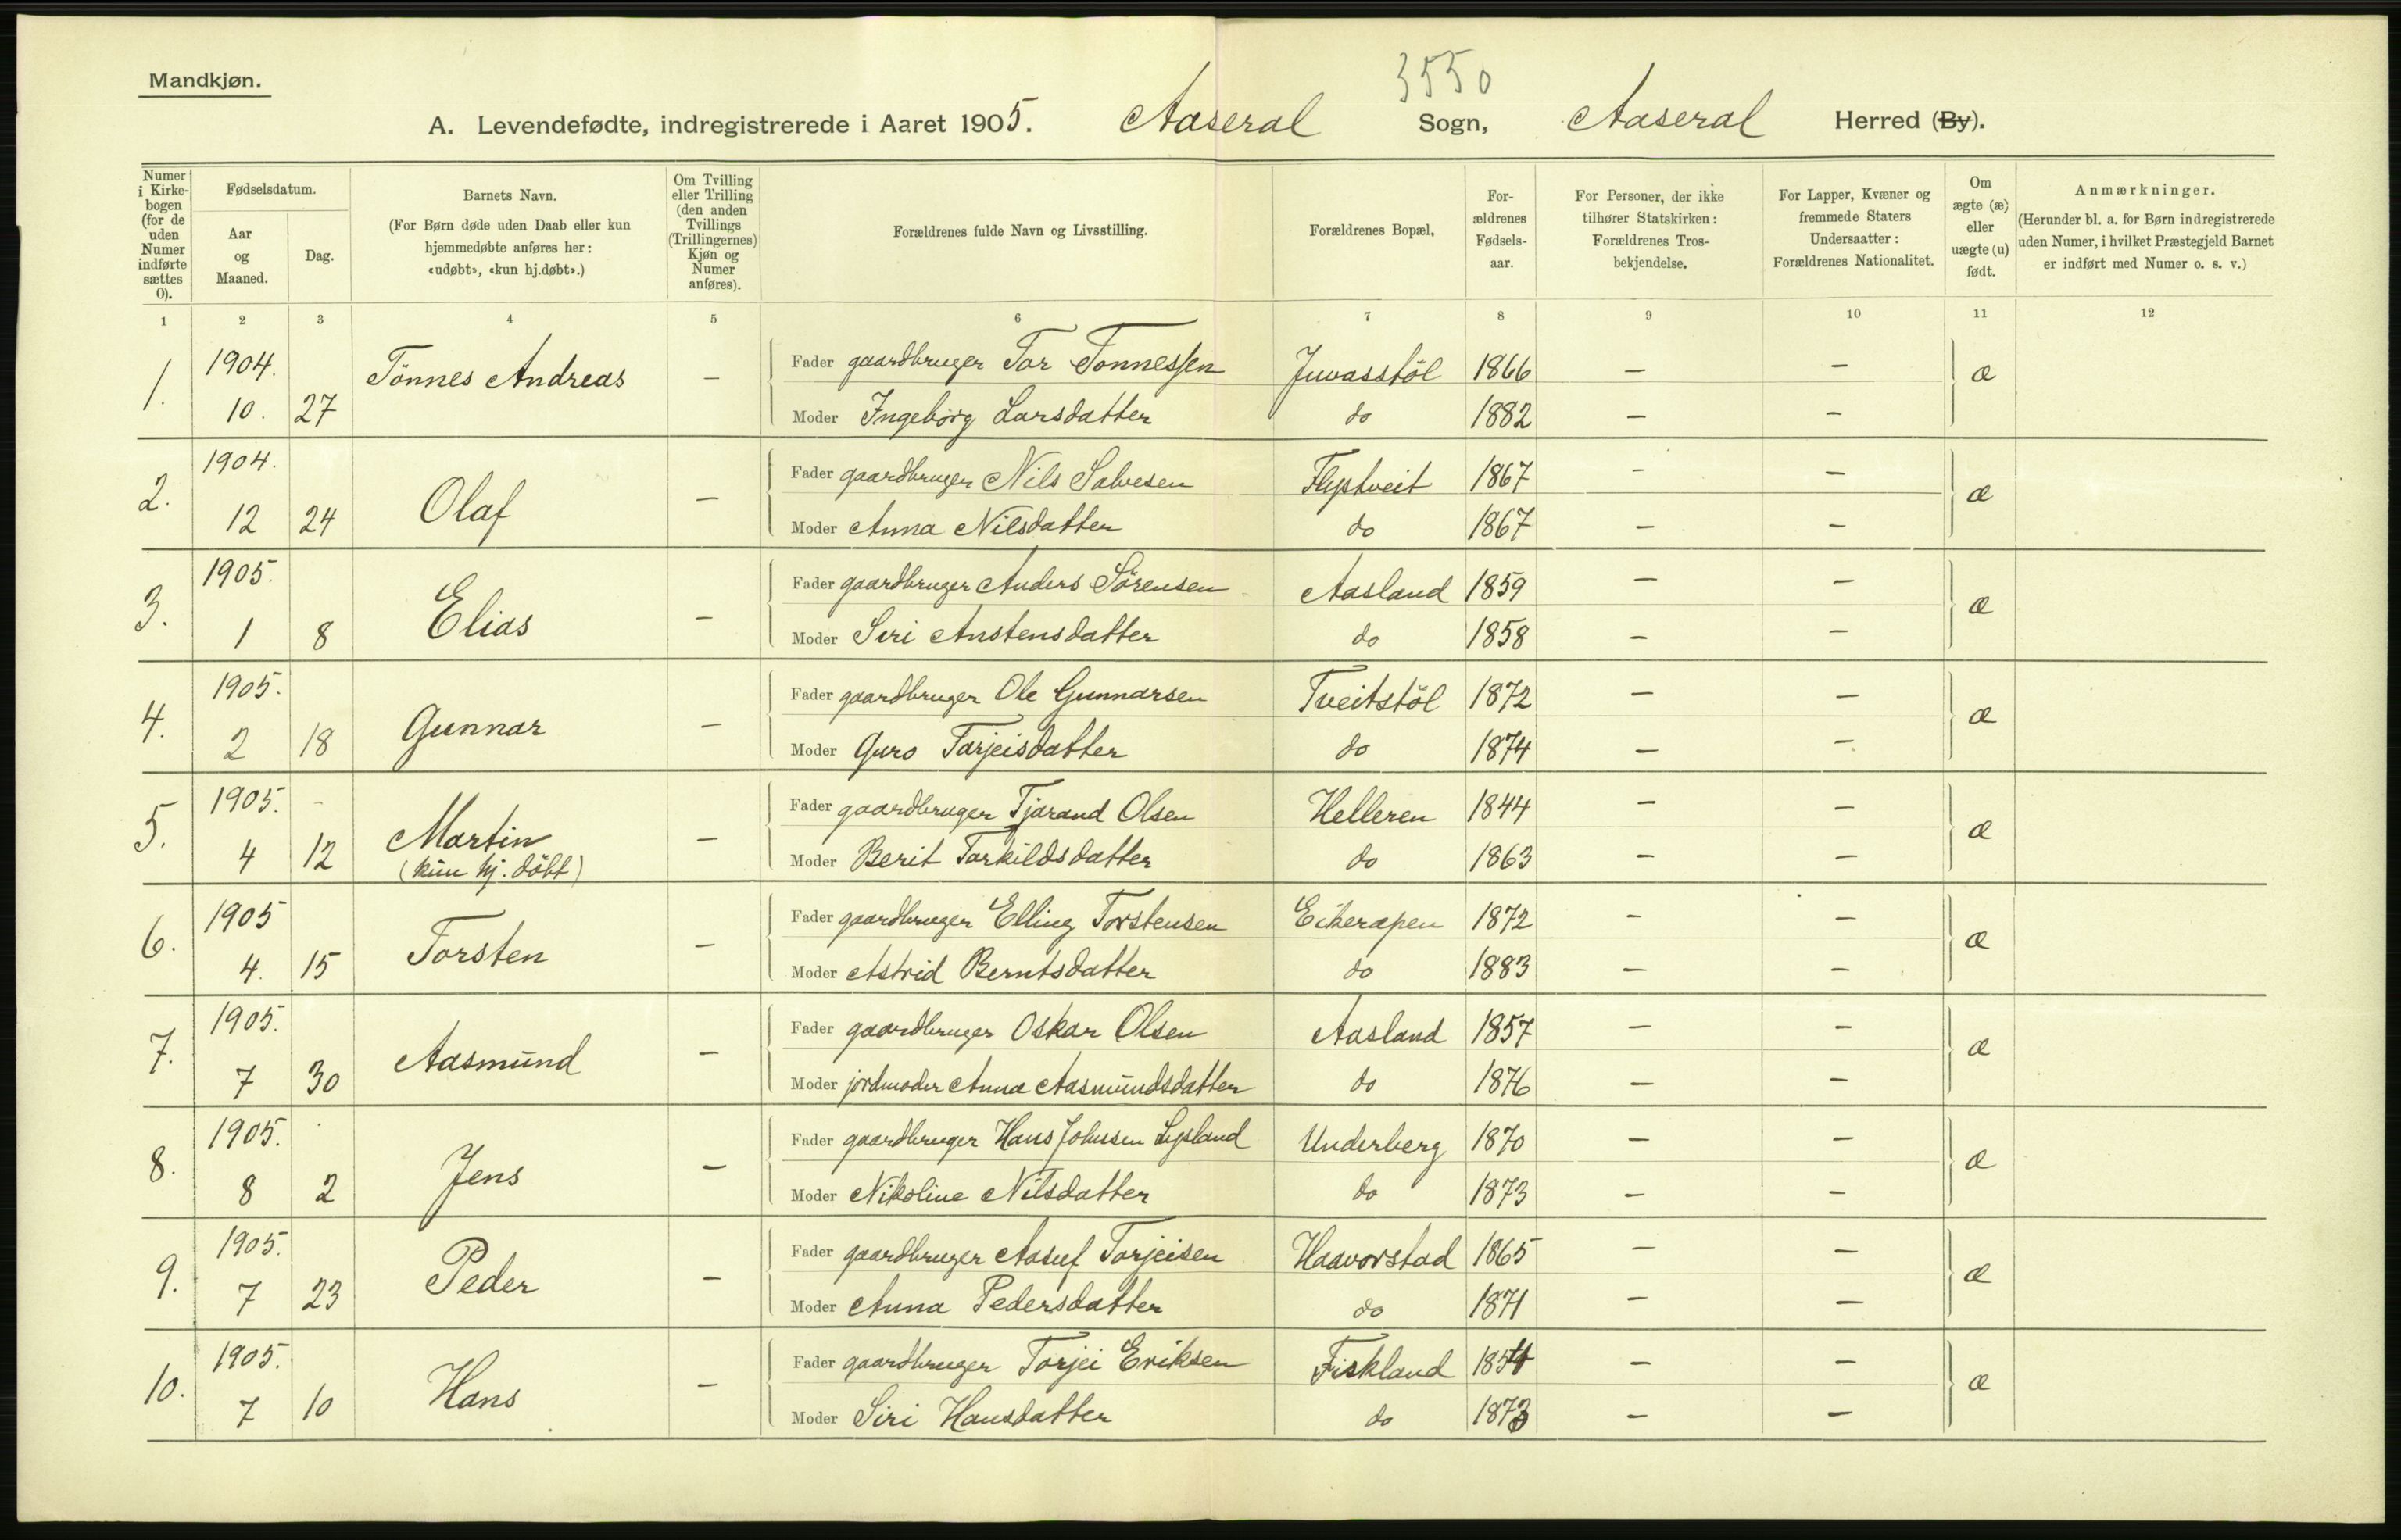 Mandkjøn.
3550
A. Levendefødte, indregistrerede i Aaret 1905. Aaseral Sogn, Aaseral Herred (By).
Numer i Kirkebogen (for de uden Numer indførte sættes 0).
Fødselsdatum.
Aar og Maaned.
Dag.
Barnets Navn.
(For Børn døde uden Daab eller kun hjemmedøbte anføres her: «udøbt», «kun hj.døbt».)
Om Tvilling eller Trilling (den anden Tvillings (Trillingernes) Kjøn og Numer anføres).
Forældrenes fulde Navn og Livsstilling.
Forældrenes Bopæl,
Forældrenes Fødselsaar.
For Personer, der ikke tilhører Statskirken: Forældrenes Trosbekjendelse.
For Lapper, Kvæner og fremmede Staters Undersaatter: Forældrenes Nationalitet.
Om ægte (æ) eller uægte (u) født.
Anmærkninger.
(Herunder bl. a. for Børn indregistrerede uden Numer, i hvilket Præstegjeld Barnet er indført med Numer o. s. v.)
1 2 3 4 5 6 7 8 9 10 11 12
1. 1904. 10. 27 Tönnes Andreas – Fader gaardbruger Tor Tonnessen Juvasstöl 1866 – – æ
Moder Ingeborg Larsdatter do 1882 – –
2. 1904. 12 24 Olaf – Fader gaardbruger Nils Salvesen Flystveit 1867 – – æ
Moder Anna Nilsdatter do 1867 – –
3. 1905. 1 8 Elias – Fader gaardbruger Anders Sörensen Aasland 1859 – – æ
Moder Siri Anstensdatter do 1858 – –
4. 1905. 2 18 Gunnar – Fader gaardbruger Ole Gunnarsen Tveitstöl 1872 – – æ
Moder Guro Tarjeisdatter do 1874 – –
5. 1905. 4 12 Martin (kun hj. döbt) – Fader gaardbruger Tjarand Olsen Helleren 1844 – – æ
Moder Berit Tarkildsdatter do 1863 – –
6. 1905 4. 15 Torsten – Fader gaardbruger Elling Torstensen Eikerapen 1872 – – æ
Moder Astrid Berntsdatter do 1883 – –
7. 1905. 7 30 Aasmund – Fader gaardbruger Oskar Olsen Aasland 1857 – – æ
Moder jordmoder Anna Aasmundsdatter do 1876 – –
8. 1905. 8 2 Jens – Fader gaardbruger Hans Johnssen Lysland Underberg 1870 – – æ
Moder Nikoline Nilsdatter do 1873 – –
9. 1905. 7 23 Peder – Fader gaardbruger Aasuf Torjeisen Haavorstad 1865 – – æ
Moder Anna Pedersdatter do 1871 – –
10. 1905. 7 10 Hans – Fader gaardbruger Torjei Eriksen Fiskland 1854 – – æ
Moder Siri Hansdatter do 1873 – –